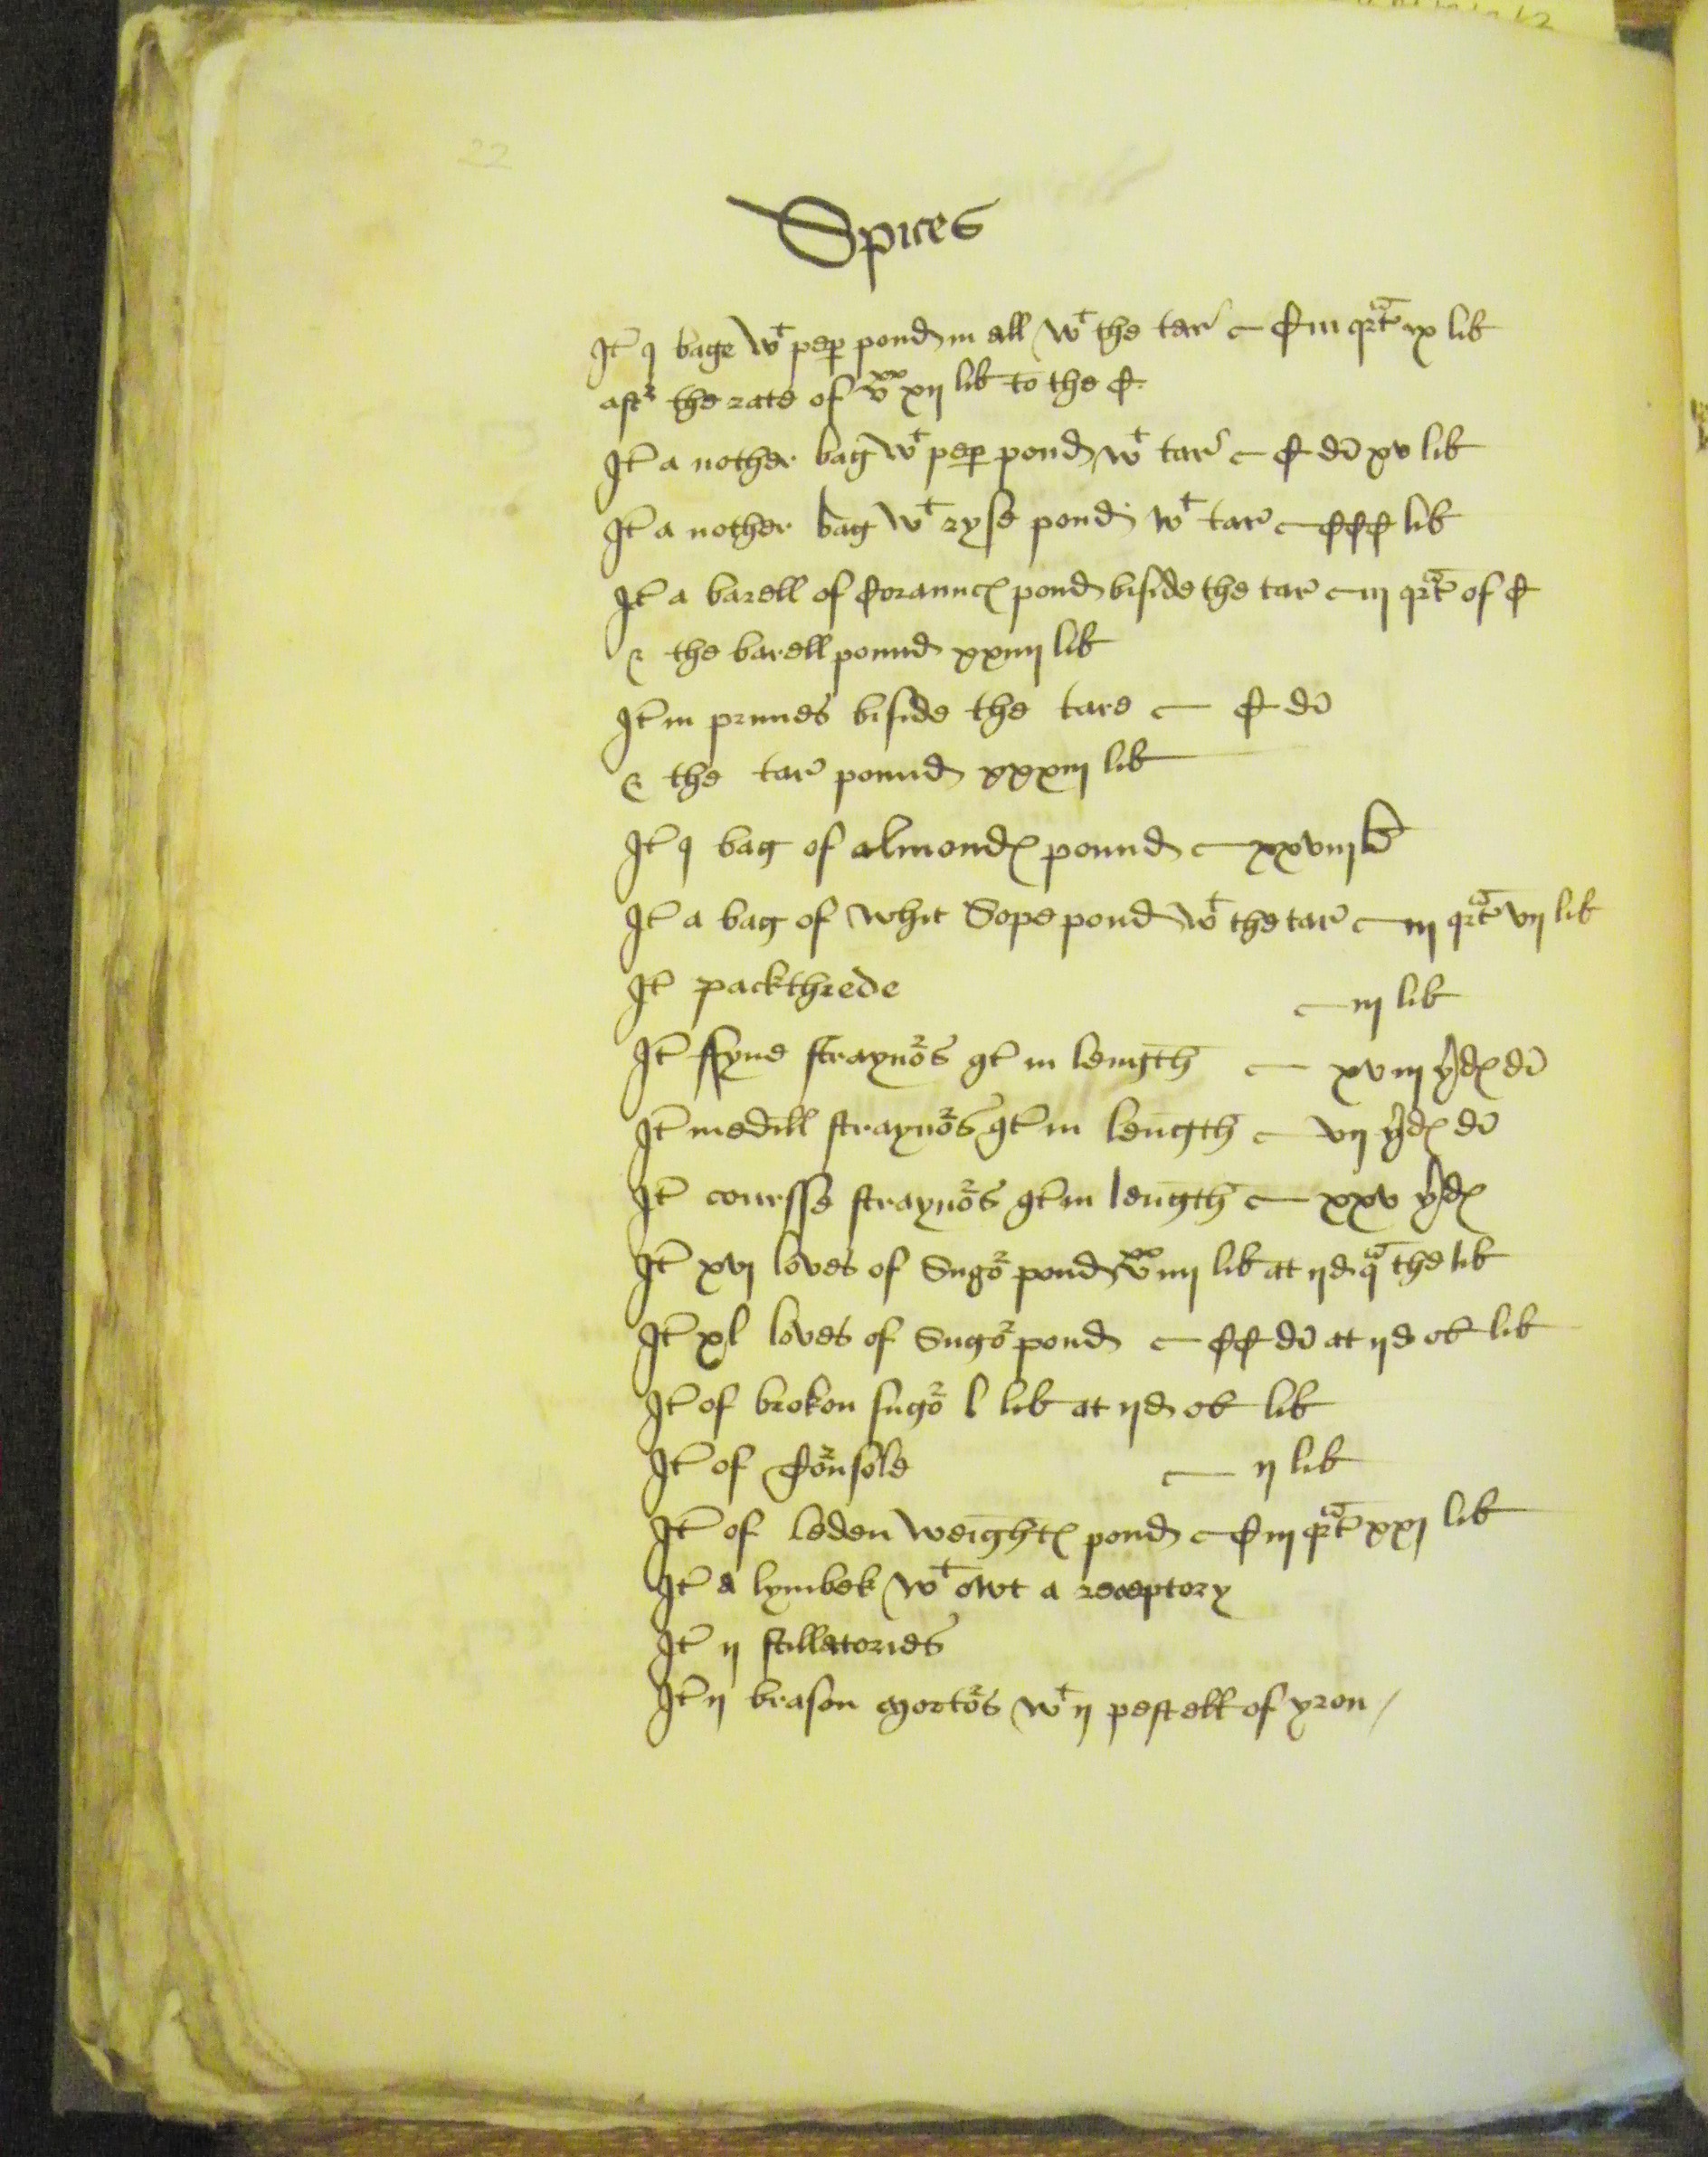 22
Spices
It̄ j bage wt pep pond in all wt the tar̄ — C iij qrt̄ ix lib
aft̄ the rate of v xx xij lib to the C
It̄ a nother bag wt pep pond wt tar̄ — C dī xv lib
It̄ a nother bag wt ryse pond wt tar̄ — CCC lib
It̄ a barell of Corannc̄ pond biside the tar̄ — iij qrt̄ of C
& the barell pound xxiiij lib
It̄ in prunes biside the tare — C dī
& the tar̄ pound xxxiij lib
It̄ j bag of almondꝭ pound — xxviij lb̄
It̄ a bag of whit Sope pond wt the tar̄ — iij qrt̄ vij lib
It̄ packthrede — iij lib
It̄ ffyne straynors ꝯt in length — xviij yrdꝭ dī
It̄ medill straynors ꝯt in length — vij yrdꝭ dī
It̄ coursse straynors ꝯt in length — xxv yrdꝭ
It̄ xvj loves of Sugor pond v xx iiij lib at ij d q the lib
It̄ xl loves of Sugor pond — CC dī at ij d ob lib
It̄ of brokon sugor l lib at ij d ob lib
It̄ of tornsole — ij lib
It̄ of leden weightꝭ pond — C iij qrt̄ xxj lib
It̄ a lymbek wt owt a receptory
It̄ ij stillatories
It̄ ij brason mortors wt ij pestell of yron /